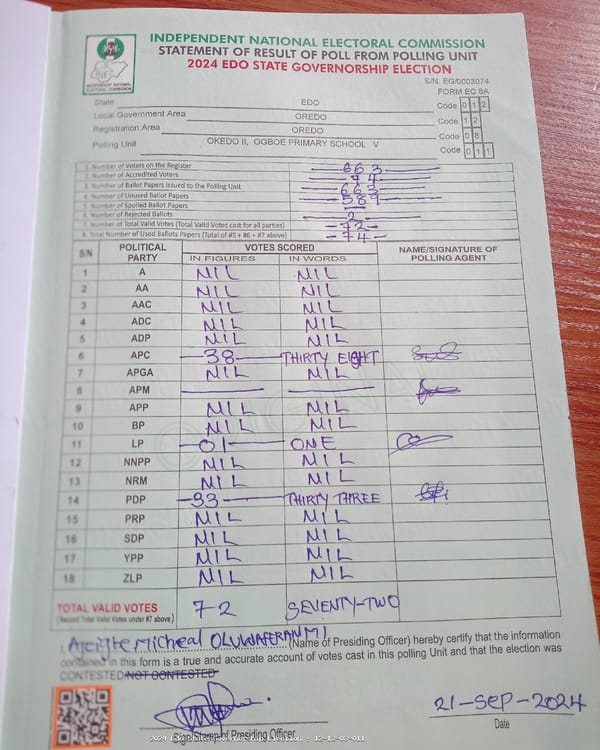 INDEPENDENT NATIONAL ELECTORAL COMMISSION
STATEMENT OF RESULT OF POLL FROM POLLING UNIT
2024 EDO STATE GOVERNORSHIP ELECTION
INDEPENDENT NATIONAL ELECTORAL COMMISSION
S/N: EG/0003074
FORM EC 8A
State EDO Code 0 1 2
Local Government Area OREDO Code 1 2
Registration Area OREDO Code 0 8
Polling Unit OKEDO II, OGBOE PRIMARY SCHOOL V Code 0 1 1
1. Number of Voters on the Register 663
2. Number of Accredited Voters 74
3. Number of Ballot Papers Issued to the Polling Unit 663
4. Number of Unused Ballot Papers 589
5. Number of Spoiled Ballot Papers —
6. Number of Rejected Ballots 2
7. Number of Total Valid Votes (Total Valid Votes cast for all parties) -72-
8. Total Number of Used Ballots Papers (Total of #5 + #6 + #7 above) -74-
S/N POLITICAL PARTY VOTES SCORED NAME/SIGNATURE OF POLLING AGENT
IN FIGURES IN WORDS
1 A NIL NIL
2 AA NIL NIL
3 AAC NIL NIL
4 ADC NIL NIL
5 ADP NIL NIL
6 APC 38 THIRTY EIGHT
7 APGA NIL NIL
8 APM — —
9 APP NIL NIL
10 BP NIL NIL
11 LP 01 ONE
12 NNPP NIL NIL
13 NRM NIL NIL
14 PDP 33 THIRTY THREE
15 PRP NIL NIL
16 SDP NIL NIL
17 YPP NIL NIL
18 ZLP NIL NIL
TOTAL VALID VOTES 72 SEVENTY-TWO
(Record Total Valid Votes under #7 above)
I, Micheal OLUWAFERANMI (Name of Presiding Officer) hereby certify that the information
contained in this form is a true and accurate account of votes cast in this polling Unit and that the election was
CONTESTED/NOT CONTESTED
21-SEP-2024
Sign/Stamp of Presiding Officer Date